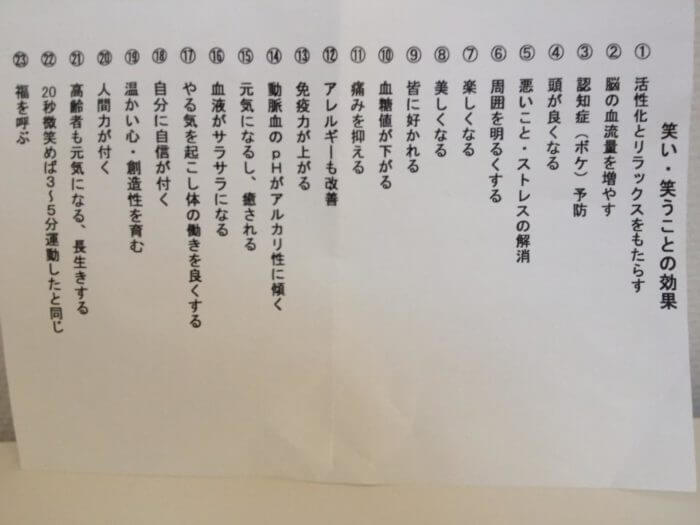 笑い・笑うことの効果
① 活性化とリラックスをもたらす
② 脳の血流量を増やす
③ 認知症（ボケ）予防
④ 頭が良くなる
⑤ 悪いこと・ストレスの解消
⑥ 周囲を明るくする
⑦ 楽しくなる
⑧ 美しくなる
⑨ 皆に好かれる
⑩ 血糖値が下がる
⑪ 痛みを抑える
⑫ アレルギーも改善
⑬ 免疫力が上がる
⑭ 動脈血のpHがアルカリ性に傾く
⑮ 元気になるし、癒される
⑯ 血液がサラサラになる
⑰ やる気を起こし体の働きを良くする
⑱ 自分に自信が付く
⑲ 温かい心・創造性を育む
⑳ 人間力が付く
㉑ 高齢者も元気になる、長生きする
㉒ 20秒微笑めば3～5分運動したと同じ
㉓ 福を呼ぶ